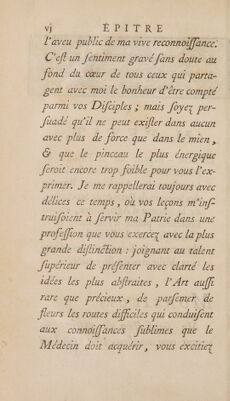 vj ÉPITRE
l'aveu public de ma vive reconnoiſſance.
C'eſt un ſentiment gravé ſans doute au
fond du cœur de tous ceux qui parta-
gent avec moi le bonheur d'être compté
parmi vos Diſciples ; mais ſoyez per-
ſuadé qu'il ne peut exiſter dans aucun
avec plus de force que dans le mien,
& que le pinceau le plus énergique
ſeroit encore trop foible pour vous l'ex-
primer. Je me rappellerai toujours avec
délices ce temps, où vos leçons m'inſ-
truiſoient à ſervir ma Patrie dans une
profeſſion que vous exercez avec la plus
grande diſtinction : joignant au talent
ſupérieur de préſenter avec clarté les
idées les plus abſtraites, l'Art auſſi
rare que précieux, de parſemer de
fleurs les routes difficiles qui conduiſent
aux connoiſſances ſublimes que le
Médecin doit acquérir, vous excitiez